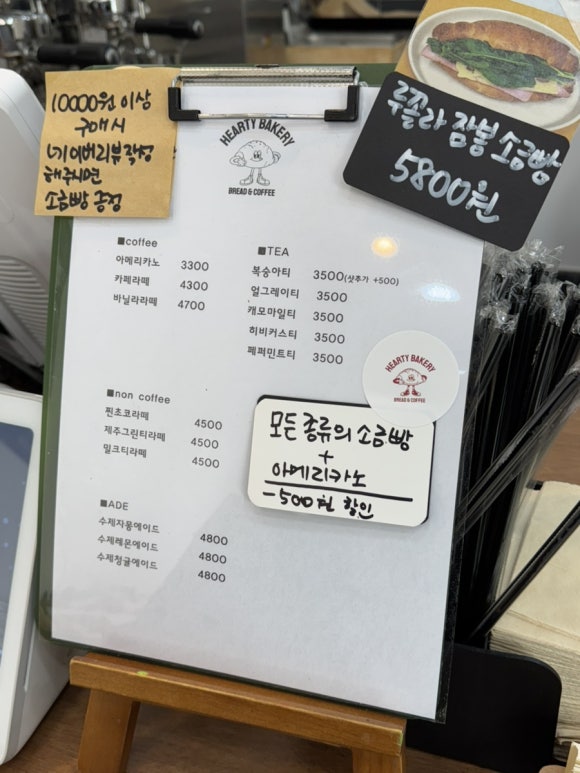 10000원 이상
구매시
네이버리뷰작성
해주시면
소금빵 증정
HEARTY BAKERY
BREAD & COFFEE
루꼴라 잠봉 소금빵
5800원
■coffee
아메리카노 3300
카페라떼 4300
바닐라라떼 4700
■TEA
복숭아티 3500(샷추가 +500)
얼그레이티 3500
캐모마일티 3500
히비커스티 3500
페퍼민트티 3500
HEARTY BAKERY
BREAD & COFFEE
■non coffee
찐초코라떼 4500
제주그린티라떼 4500
밀크티라떼 4500
모든 종류의 소금빵
+
아메리카노
-500원 할인
■ADE
수제자몽에이드 4800
수제레몬에이드 4800
수제청귤에이드 4800